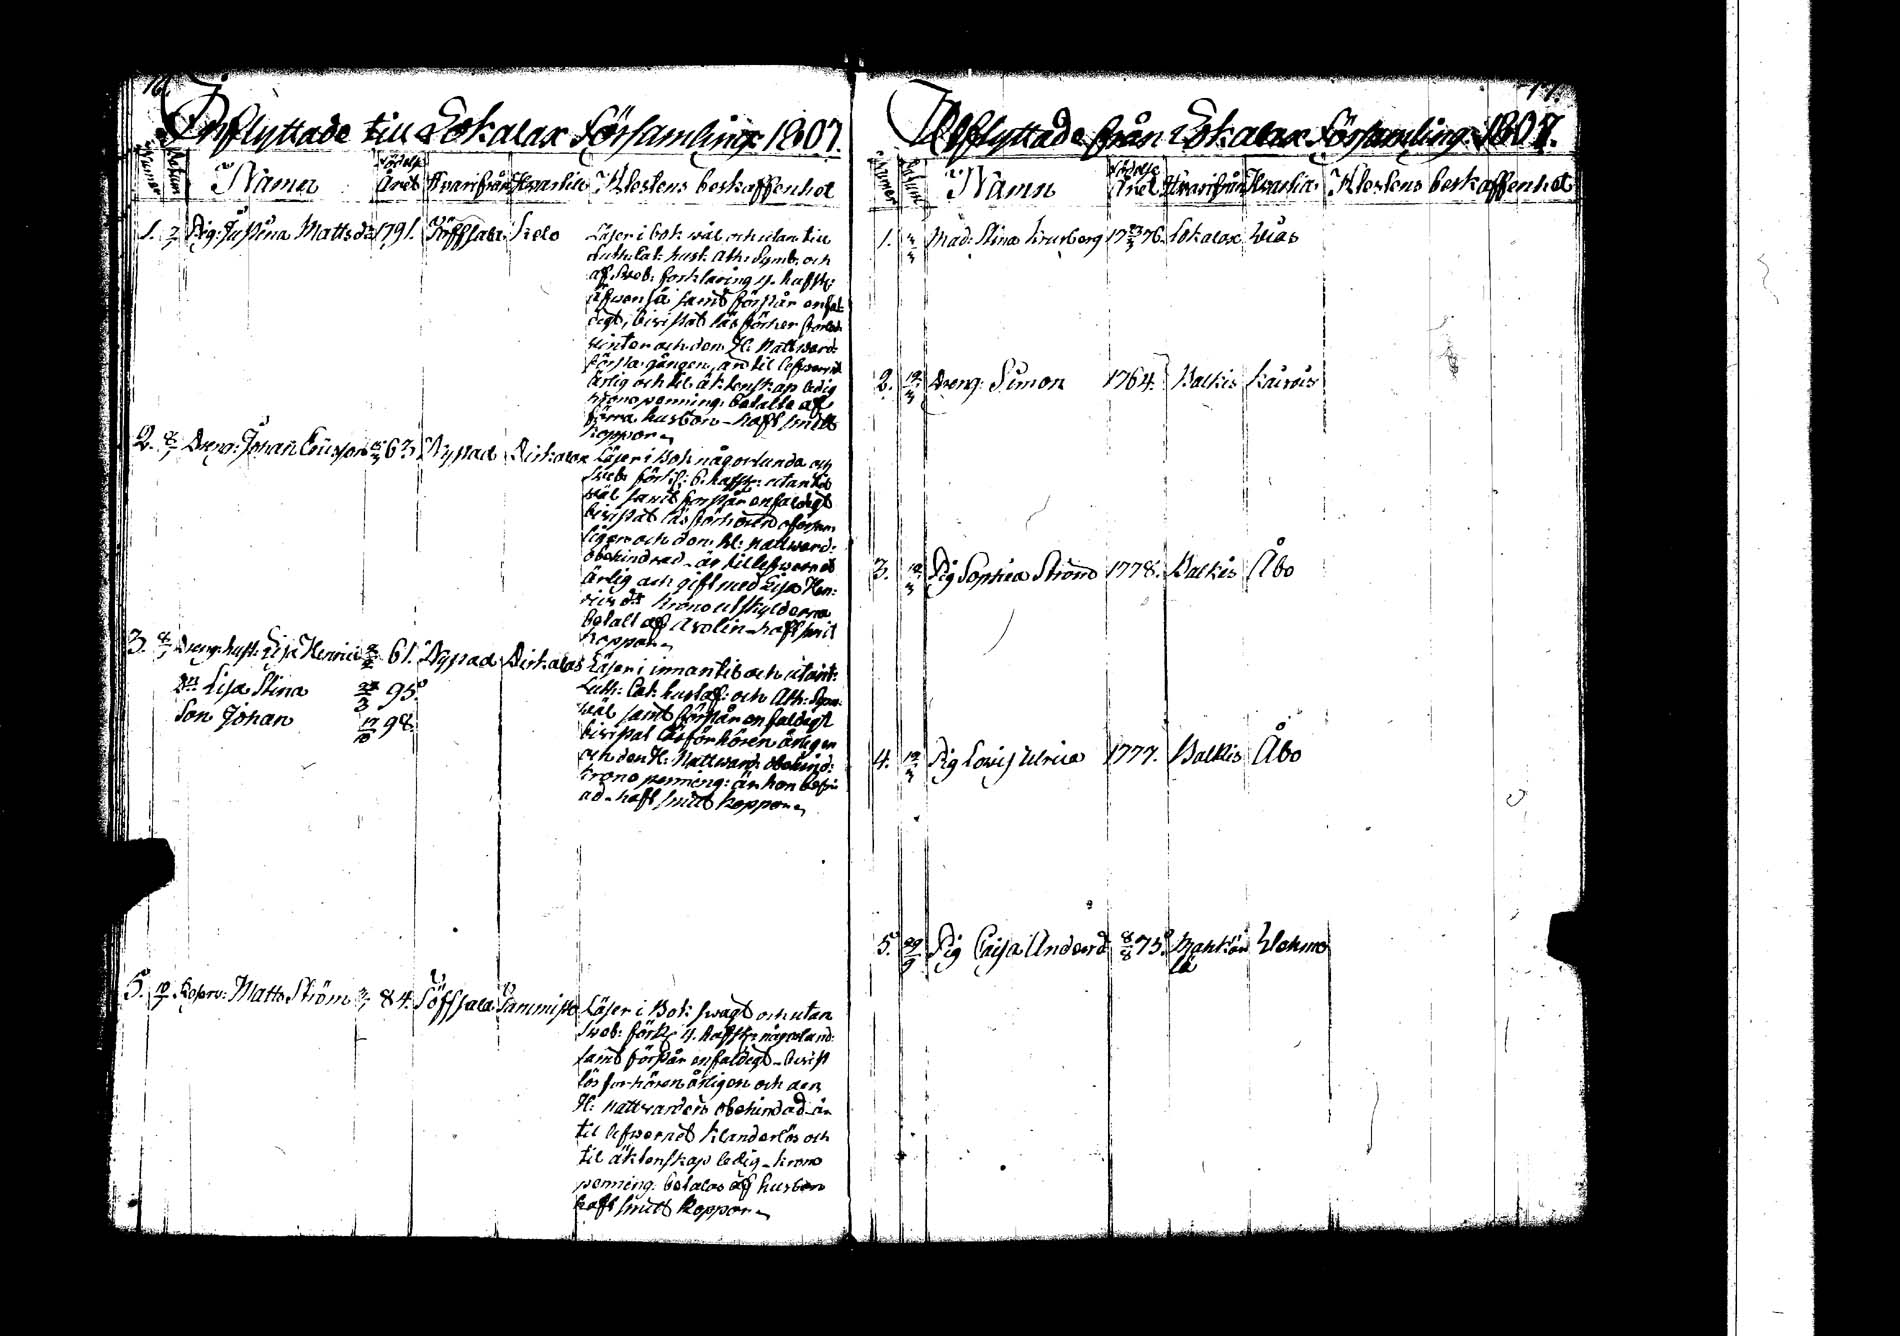 16.
Inflyttade till Lokalax Församling 1807.
Numer Datum Namn Födelse Året Hvarifrån Hvartill Attestens beskaffenhet
1. Pig: Justina Mattsdr 1791. Kelo
Läser i bok wäl och utan till
Luth: Cat: hust: Ath: Symb: och
af Sweb: forklaring 4. hafttr
äfwen så samt förstår enfal-
digt, bivistat läs förhör
och den H: Nattward:
första gången, är til lefwernet
ärlig och til äktenskap ledig
krono penning: betalte af
förra husbon - haft smitt
koppor
2. 8 Dreng: Johan Ericsson 63 Nypad Dirkalax
Läser i Bok någorlunda och
Sweb: förkl: 6. haftr: utan til
wäl samt förstår enfaldigt
bivistat läs förhören
och den H: Nattward:
obehindrad - är til lefwernet
ärlig och gift med Lisa Hen:
rics dr krono utskylderna
betalt af Arolin - haft smit
koppor
3. 8 Dreng: hust: Lisa Henric 61. Nypad Dirkalax
Dr Lisa Stina 3 95
Son Johan 17/10 98.
Läser i innantil och utant:
Luth: Cat: hustaf: och Ath: Sym:
wäl samt förstår enfaldigt
bivistat läsförhören årligen
och den H: Nattward: obehind:
krono penning: är hon befri
ad - haft smitt koppor
5. 10 Matts Ström 84. Sammisto
Läser i Bok swagt och utan
Sweb: förkl 4. haftr någorlund:
samt förstår enfaldigt - bivist
läs forhören årligen och den
H: nattwarden obehindad - är
til lefwernet klanderlös och
til äktenskap ledig - krono
penning: betalas af husbon
haft smitt koppor
17.
Utflyttade från Lokalax Församling: 1807.
Numer Datum Namn Födelse Året Hvarifrån Hvartil Attestens beskaffenhet
1. 3 Mad: Stina Krusberg 17 23/3 76. Lokalax Wiås
2. 12/3 Dreng: Simon 1764. Balkis Kairois
3. 12/3 Pig Sophia Strönd 1778. Balkis Åbo
4. 12/3 Pig Lovis Ulrica 1777. Balkis Åbo
5. 29/9 Pig Caisa Andersd 8/8 75. Wehmo